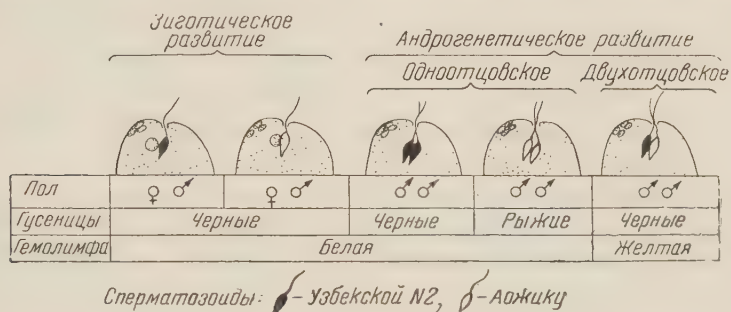 Зиготическое
развитие
Андрогенетическое развитие
Одноотцовское Двухотцовское
Пол ♀ ♂ ♀ ♂ ♂ ♂ ♂ ♂ ♂ ♂
Гусеницы Черные Черные Рыжие Черные
Гемолимфа Белая Желтая
Сперматозоиды: - Узбекской N2, - Аожику